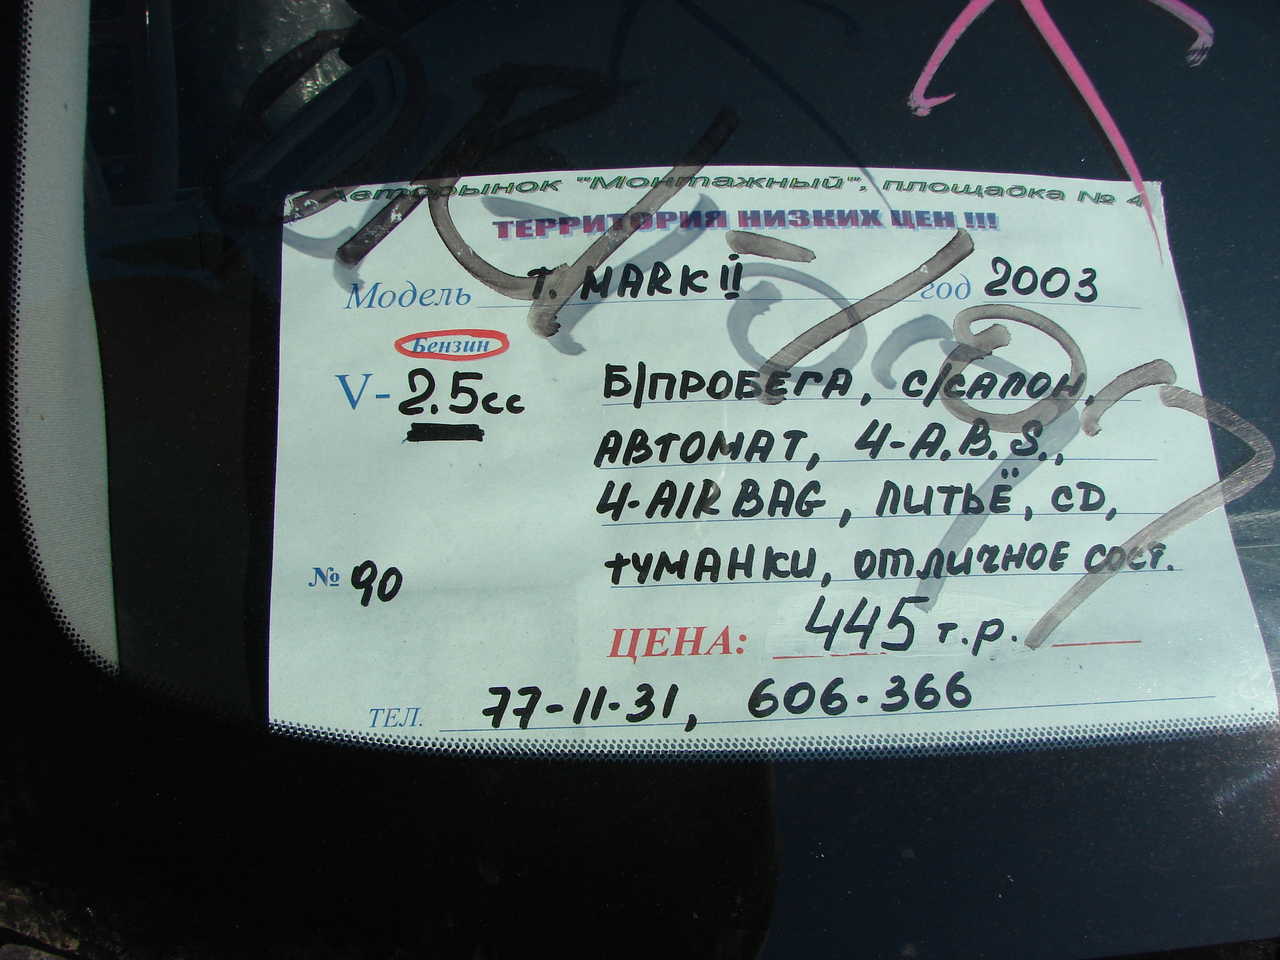 Авторынок "Монтажный", площадка № 4
ТЕРРИТОРИЯ НИЗКИХ ЦЕН !!!
Модель Т. MARK II год 2003
Бензин
V- 2.5сс
Б/ПРОБЕГА, С/САЛОН,
АВТОМАТ, 4-A.B.S.,
4-AIR BAG, ЛИТЬЁ, CD,
ТУМАНКИ, ОТЛИЧНОЕ СОСТ.
№ 90
ЦЕНА: 445 т.р.
ТЕЛ. 77-11-31, 606-366